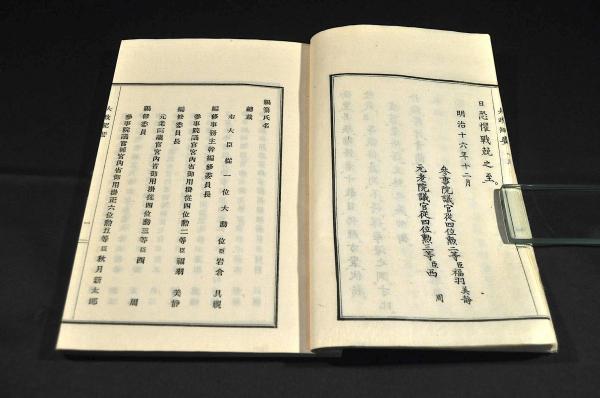 日恐懼戰兢之至。
明治十六年十二月
參事院議官從四位勲二等臣福羽美靜
元老院議官從四位勲三等臣西 周
編纂氏名
總裁
右大臣從一位大勲位臣岩倉具視
編修事務主幹編修委員長
參事院議官宮內省御用掛從四位勲二等臣福羽美靜
編修委員長
元老院議官宮內省御用掛從四位勲三等臣西 周
編修委員
參事院議官宮內省御用掛正六位勲五等臣秋月新太郎